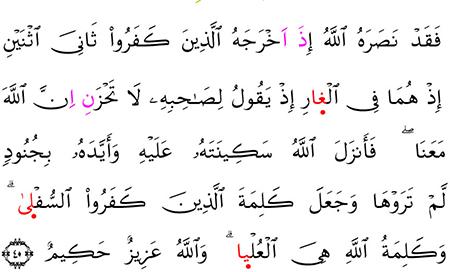 فَقَدۡ نَصَرَهُ ٱللَّهُ إِذَ اَخۡرَجَهُ ٱلَّذِينَ كَفَرُواْ ثَانِيَ ٱثۡنَيۡنِ
إِذۡ هُمَا فِي ٱلۡغارِ إِذۡ يَقُولُ لِصَٰحِبِهِۦ لَا تَحۡزَنِ اِنَّ ٱللَّهَ
مَعَنَاۖ فَأَنزَلَ ٱللَّهُ سَكِينَتَهُۥ عَلَيۡهِ وَأَيَّدَهُۥ بِجُنُودٖ
لَّمۡ تَرَوۡهَا وَجَعَلَ كَلِمَةَ ٱلَّذِينَ كَفَرُواْ ٱلسُّفۡلىٰۗ
وَكَلِمَةُ ٱللَّهِ هِيَ ٱلۡعُلۡياۗ وَٱللَّهُ عَزِيزٌ حَكِيمٌ ٤٠